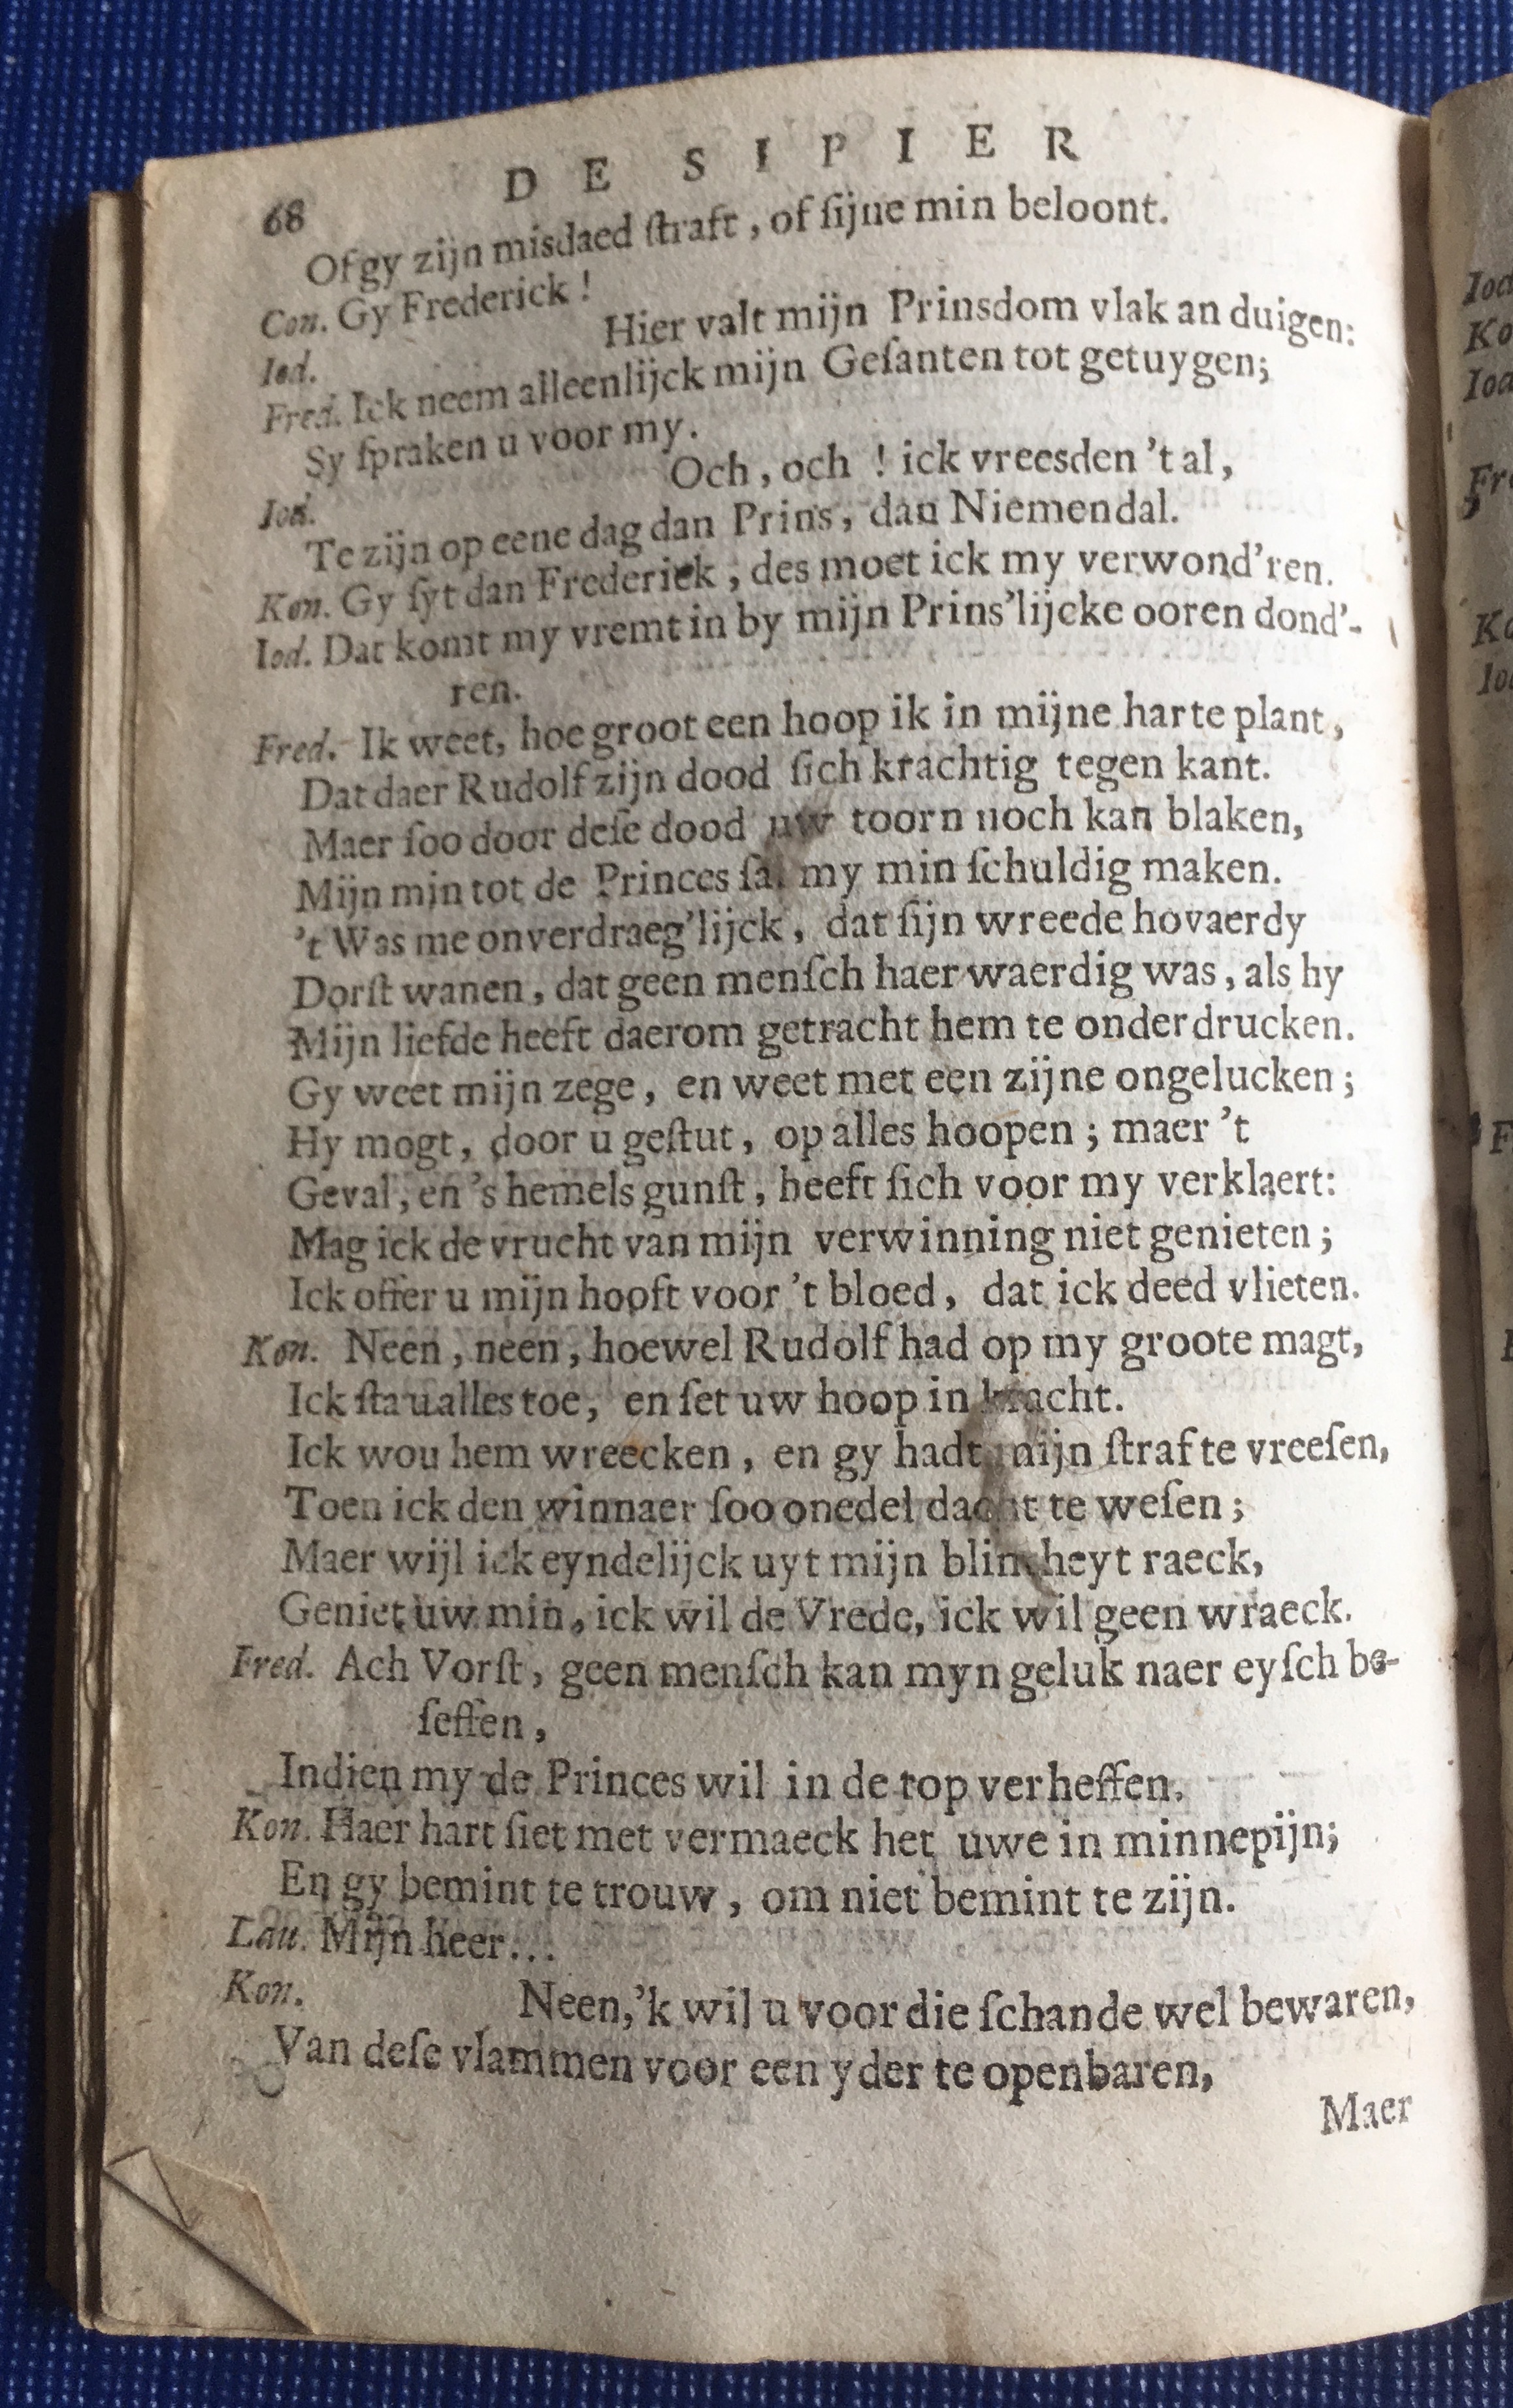 68
DE SIPIER
Of gy zijn misdaed ſtraft, of ſijne min beloont.
Con. Gy Frederick!
Iod. Hier valt mijn Prinsdom vlak an duigen:
Fred. Ick neem alleenlijck mijn Geſanten tot getuygen;
Sy ſpraken u voor my.
Iod. Och, och! ick vreesden 't al,
Te zijn op eene dag dan Prins, dan Niemendal.
Kon. Gy ſyt dan Frederick, des moet ick my verwond'ren.
Iod. Dat komt my vremt in by mijn Prins'lijcke ooren dond'-
ren.
Fred. Ik weet, hoe groot een hoop ik in mijne harte plant,
Dat daer Rudolf zijn dood ſich krachtig tegen kant.
Maer ſoo door deſe dood uw toorn noch kan blaken,
Mijn min tot de Princes ſal my min ſchuldig maken.
't Was me onverdraeg'lijck, dat ſijn wreede hovaerdy
Dorſt wanen, dat geen menſch haer waerdig was, als hy
Mijn liefde heeft daerom getracht hem te onderdrucken.
Gy weet mijn zege, en weet met een zijne ongelucken;
Hy mogt, door u geſtut, op alles hoopen; maer 't
Geval, en 's hemels gunſt, heeft ſich voor my verklaert:
Mag ick de vrucht van mijn verwinning niet genieten;
Ick offer u mijn hooft voor 't bloed, dat ick deed vlieten.
Kon. Neen, neen, hoewel Rudolf had op my groote magt,
Ick ſta u alles toe, en ſet uw hoop in kracht.
Ick wou hem wreecken, en gy hadt mijn ſtraf te vreeſen,
Toen ick den winnaer ſoo onedel dacht te weſen;
Maer wijl ick eyndelijck uyt mijn blintheyt raeck,
Geniet uw min, ick wil de Vrede, ick wil geen wraeck.
Fred. Ach Vorſt, geen menſch kan myn geluk naer eyſch be-
ſeffen,
Indien my de Princes wil in de top verheffen.
Kon. Haer hart ſiet met vermaeck het uwe in minnepijn;
En gy bemint te trouw, om niet bemint te zijn.
Lau. Mijn heer...
Kon. Neen, 'k wil u voor die ſchande wel bewaren,
Van deſe vlammen voor een yder te openbaren,
Maer